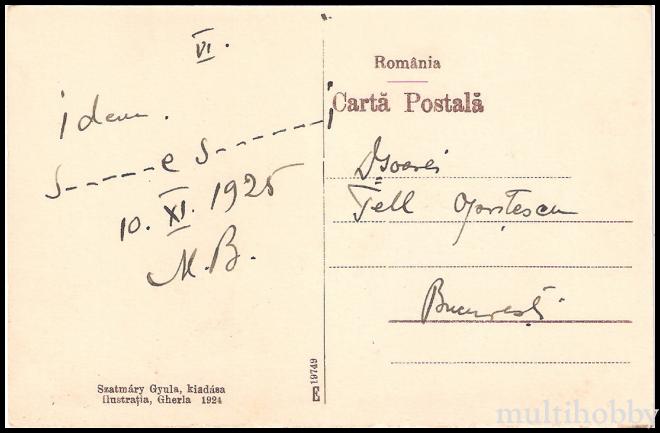 VI.
Idem.
S-----e S------i
10. XI. 1925
M.B.
Szatmáry Gyula, kiadása
Ilustrația, Gherla 1924
E 19749
România
Cartă Postală
Tell
București
multihobby